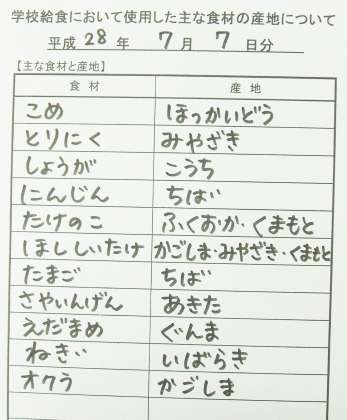 学校給食において使用した主な食材の産地について
平成 28 年 7 月 7 日分
【主な食材と産地】
食材 産地
こめ ほっかいどう
とりにく みやざき
しょうが こうち
にんじん ちば
たけのこ ふくおか・くまもと
ほししいたけ かごしま・みやざき・くまもと
たまご ちば
さやいんげん あきた
えだまめ ぐんま
ねぎ いばらき
オクラ かごしま